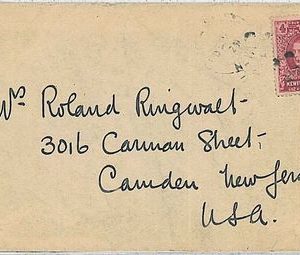 Mrs Roland Ringwalt
3016 Carman Street,
Camden New Jer
U.S.A.